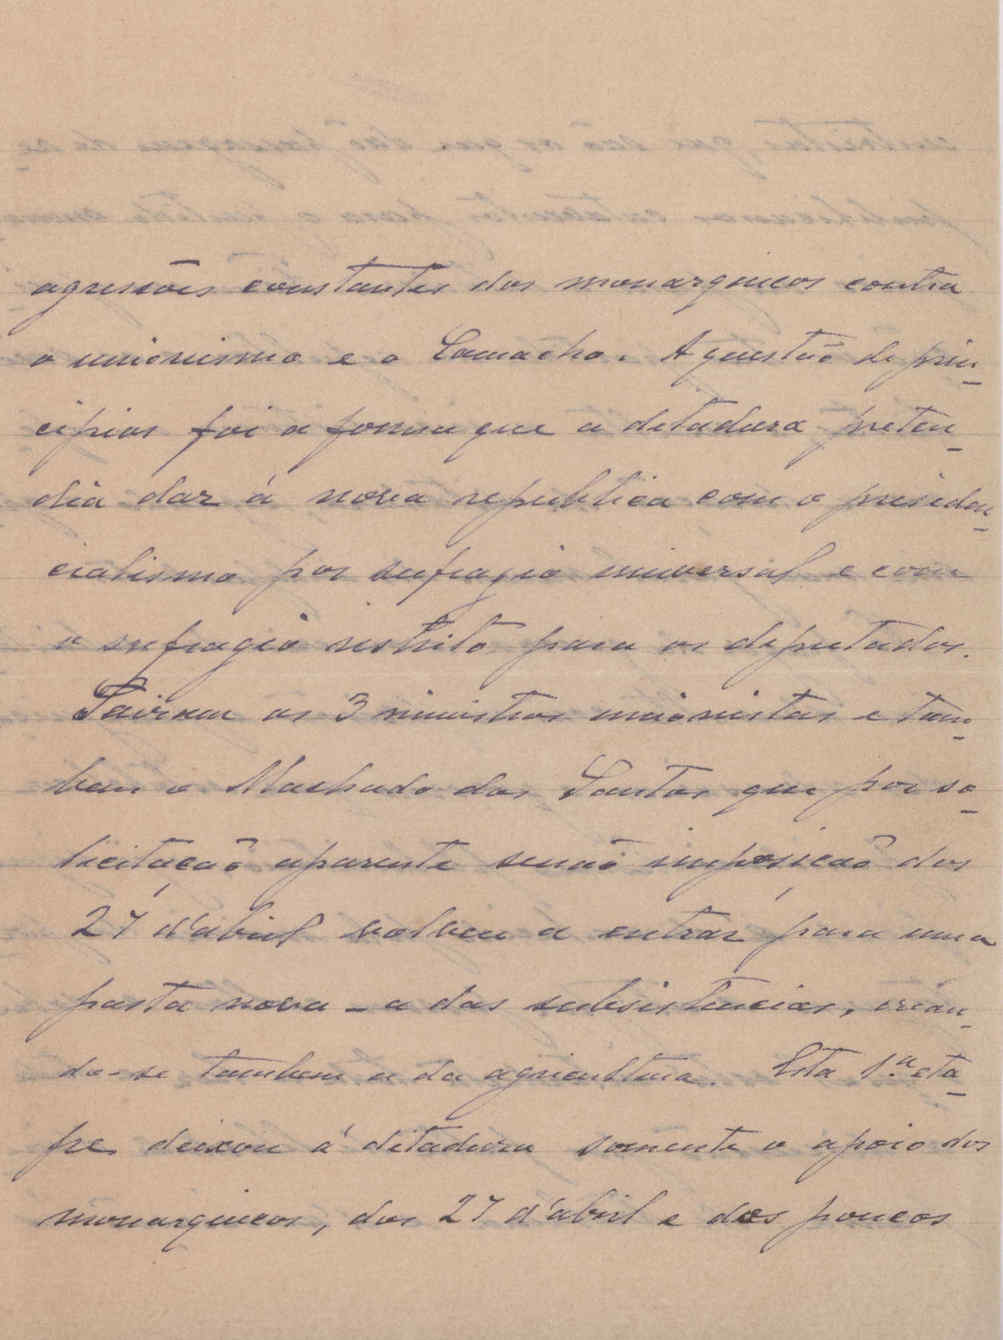 agressões constantes dos monarquicos contra
o unionismo e o Camacho. A questão de prin-
cipios foi a forma que a ditadura preten-
dia dar á nova republica com o presiden-
cialismo por sufragio universal e com
o sufragio restrito para os deputados.
Sairam os 3 ministros unionistas e tam-
bem o Machado dos Santos que por so-
licitação aparente senão imposição dos
27 d'abril volveu a entrar para uma
pasta nova - a das subsistencias, crian-
do-se tambem a da agricultura. Esta 1.ª eta-
pe deixou á ditadura somente o apoio dos
monarquicos, dos 27 d'abril e dos poucos